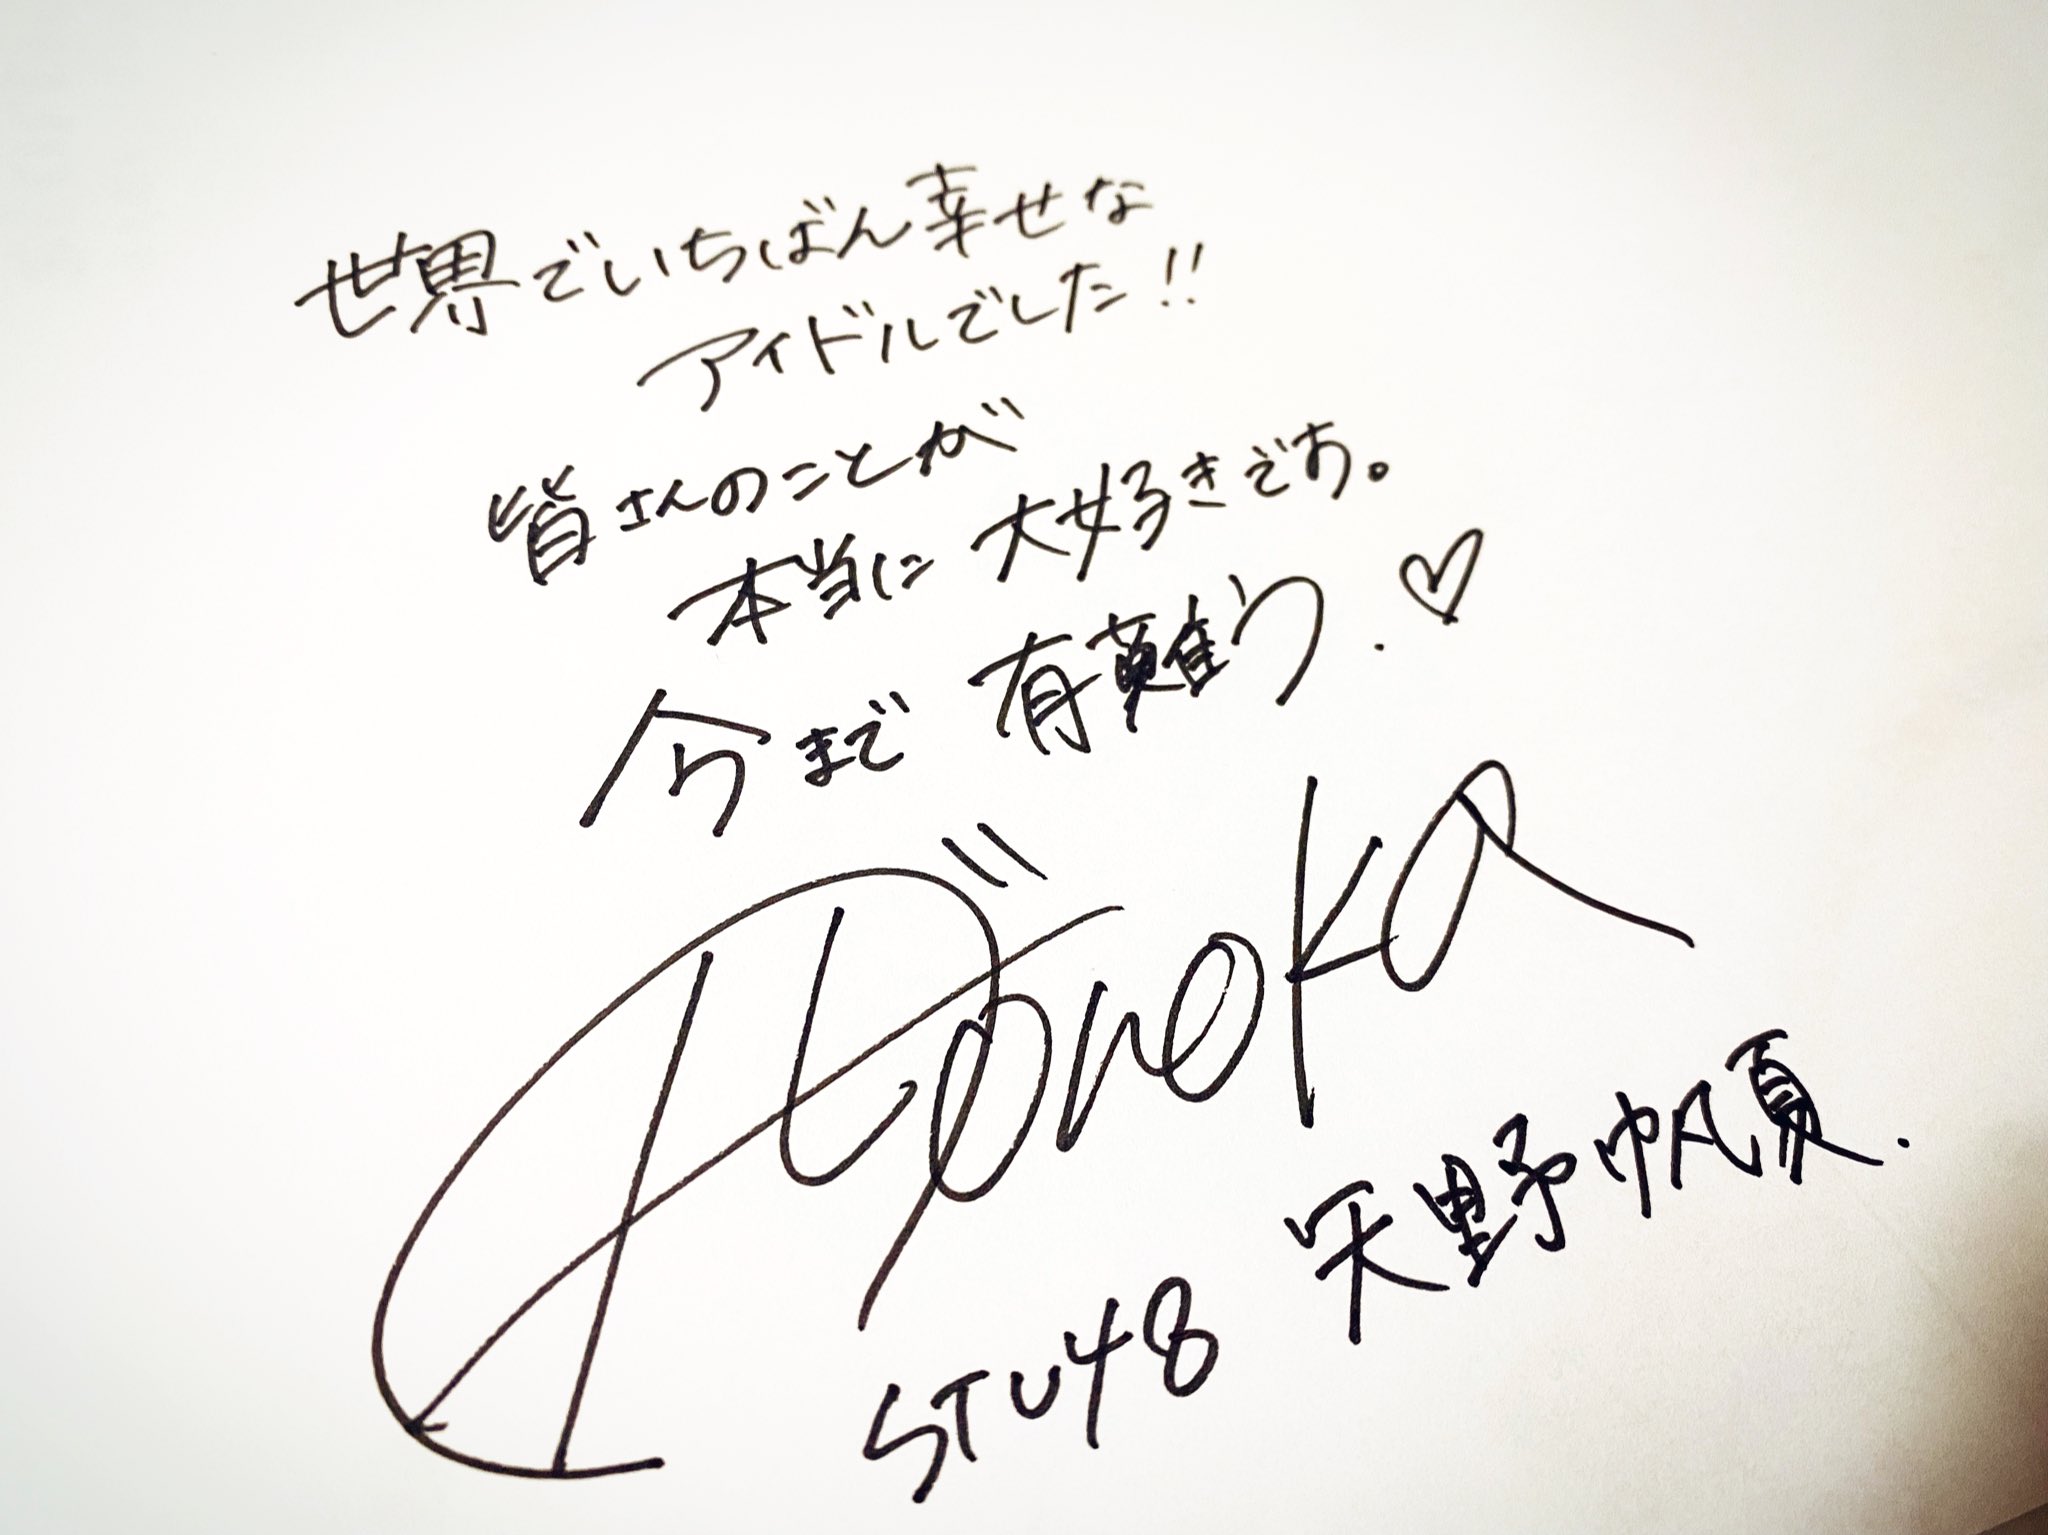 世界でいちばん幸せな
アイドルでした!!
皆さんのことが
本当に大好きです。
今まで 有難う.♡
Honoka
STU48 矢野帆夏.